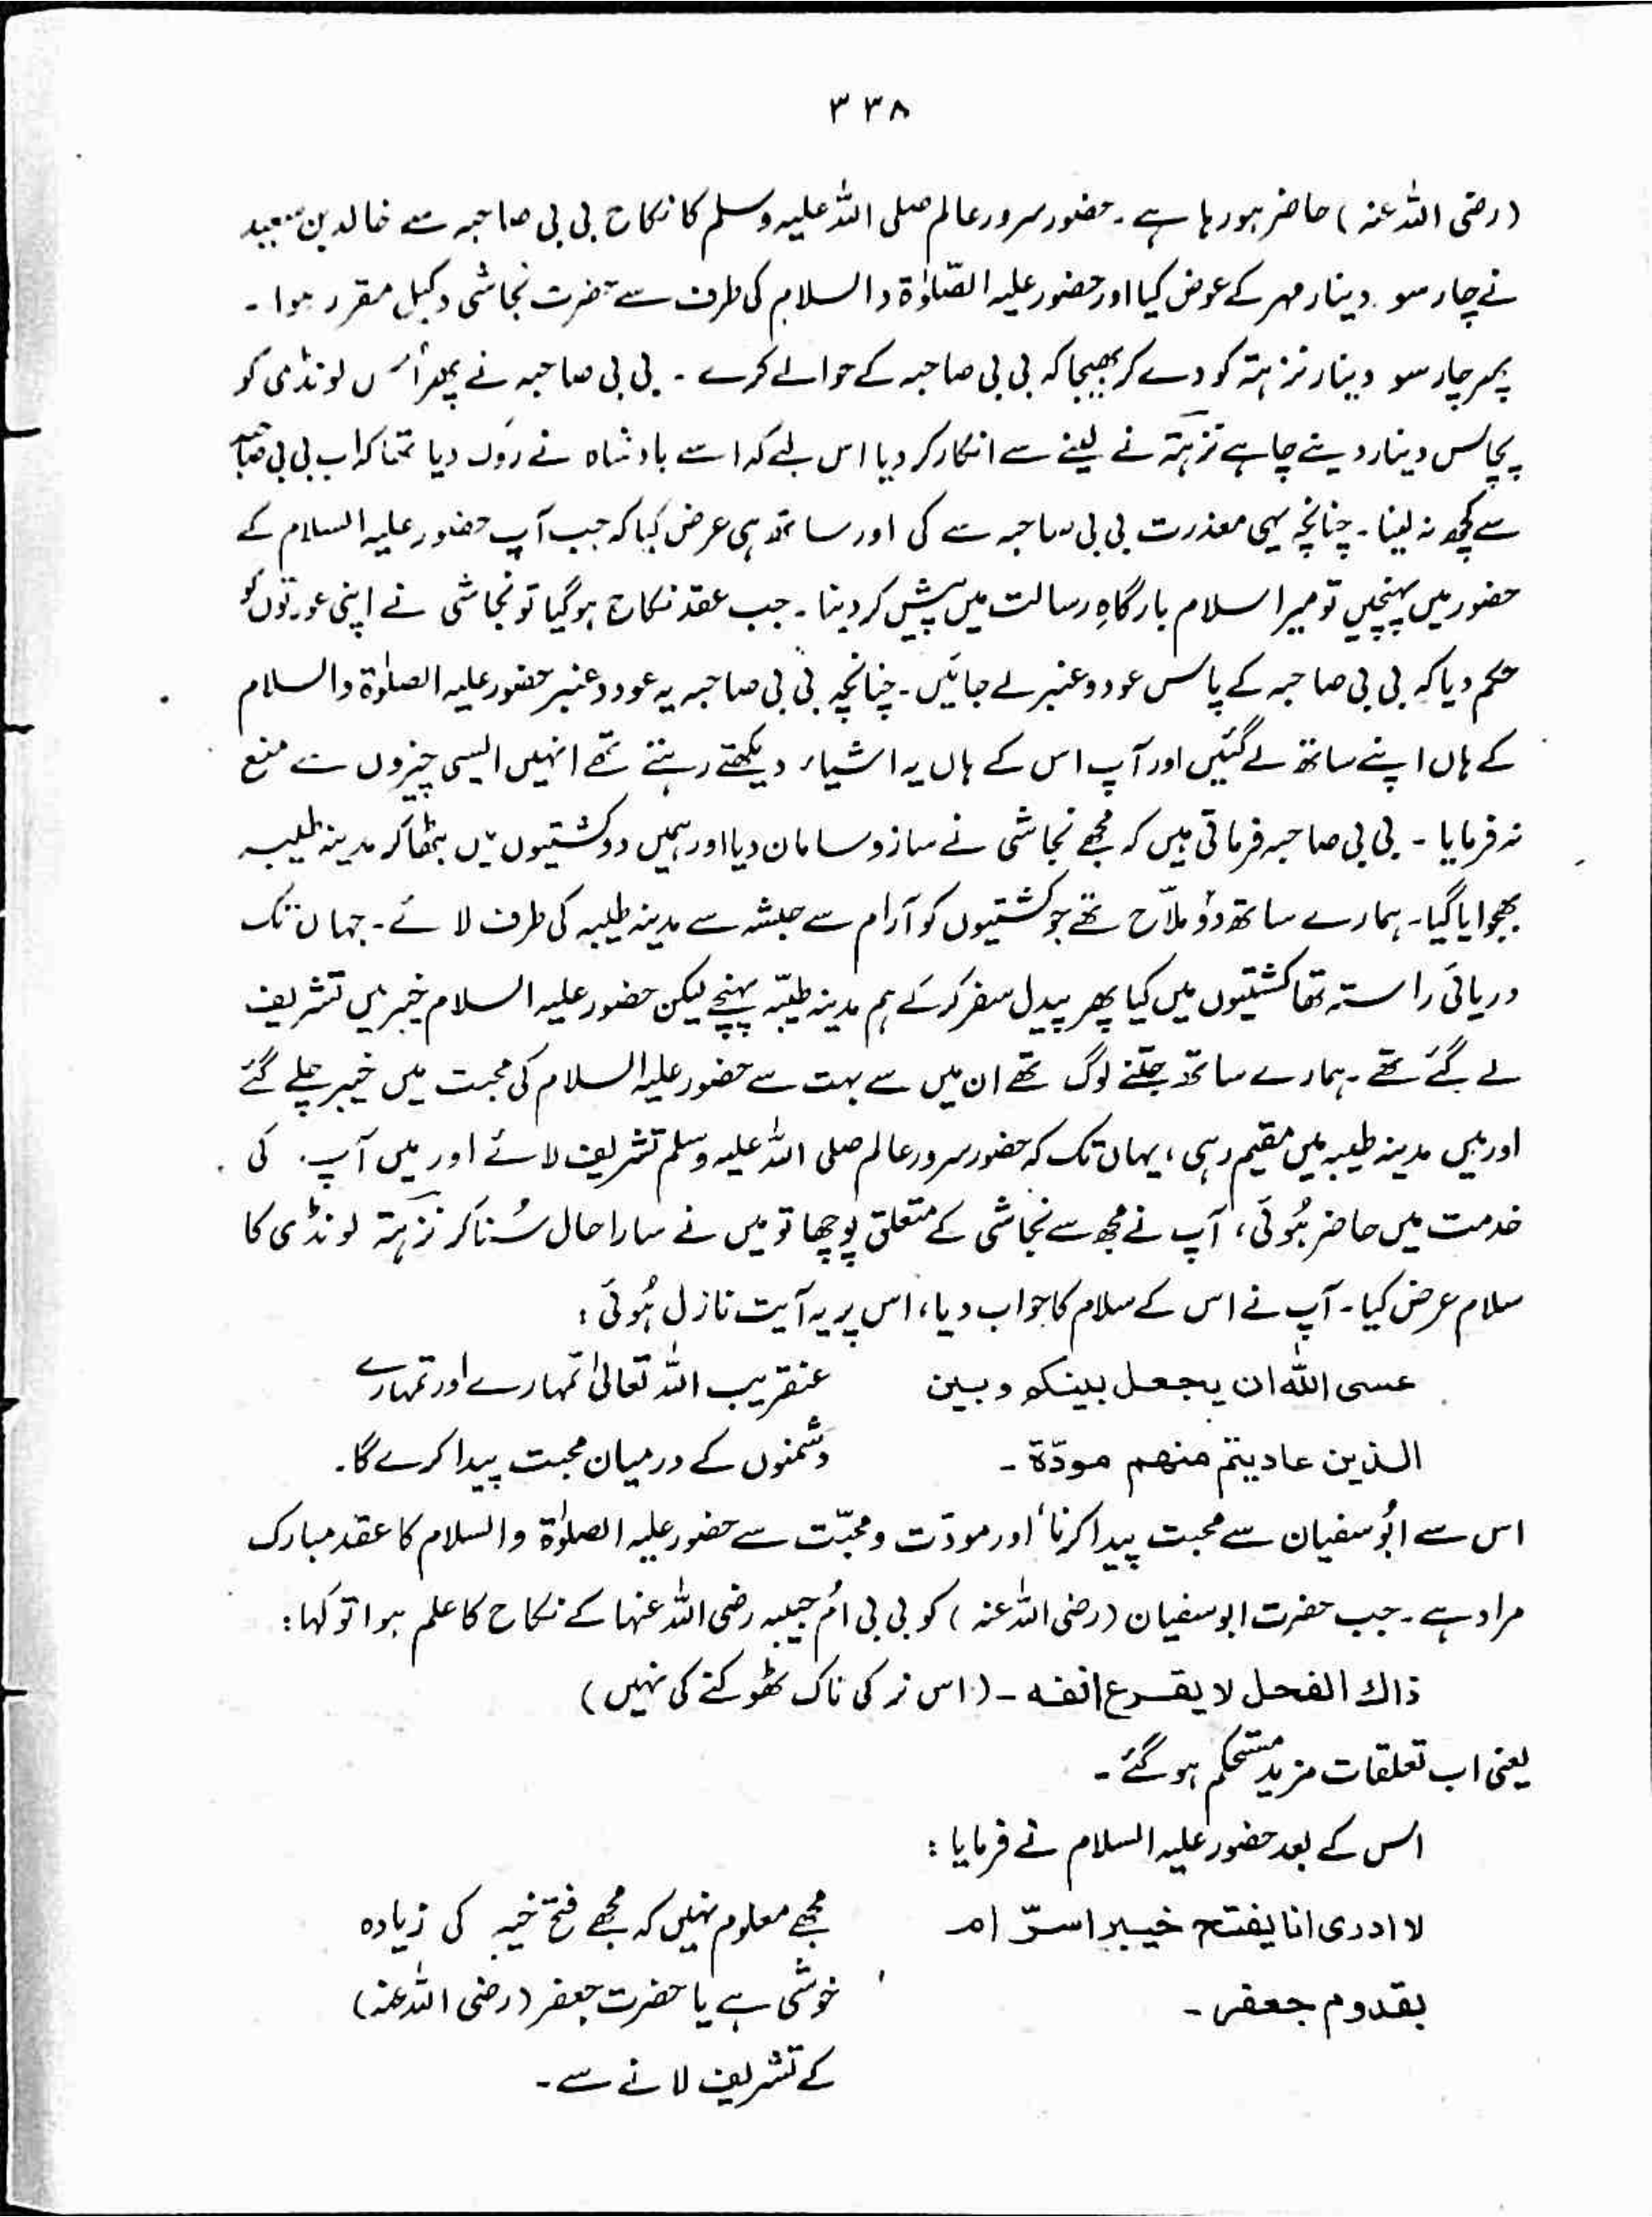 ۳۳۸
(رضی اللہ عنہ) حاضر ہو رہا ہے۔ حضور سرور عالم صلی اللہ علیہ وسلم کا نکاح بی بی صاحبہ سے خالد بن سعید
نے چار سو دینار مہر کے عوض کیا اور حضور علیہ الصّلوٰۃ والسلام کی طرف سے حضرت نجاشی وکیل مقرر ہوا۔
پھر چار سو دینار نزہتہ کو دے کر بھیجا کہ بی بی صاحبہ کے حوالے کرے۔ بی بی صاحبہ نے پھر اُس لونڈی کو
پچاس دینار دینے چاہے نزہتہ نے لینے سے انکار کر دیا اس لئے کہ اسے بادشاہ نے روک دیا تھا کہ اب بی بی صاحبہ
سے کچھ نہ لینا۔ چنانچہ یہی معذرت بی بی صاحبہ سے کی اور ساتھ ہی عرض کیا کہ جب آپ حضور علیہ السلام کے
حضور میں پہنچیں تو میرا سلام بارگاہِ رسالت میں پیش کر دینا۔ جب عقد نکاح ہو گیا تو نجاشی نے اپنی عورتوں کو
حکم دیا کہ بی بی صاحبہ کے پاس عود و عنبر لے جائیں۔ چنانچہ بی بی صاحبہ یہ عود و عنبر حضور علیہ الصلوٰۃ والسلام
کے ہاں اپنے ساتھ لے گئیں اور آپ اس کے ہاں یہ اشیاء دیکھتے رہتے تھے انہیں ایسی چیزوں سے منع
نہ فرمایا۔ بی بی صاحبہ فرماتی ہیں کہ مجھے نجاشی نے ساز و سامان دیا اور ہمیں دو کشتیوں میں بٹھا کر مدینہ طیبہ
بھجوایا گیا۔ ہمارے ساتھ دو ملّاح تھے جو کشتیوں کو آرام سے حبشہ سے مدینہ طیبہ کی طرف لائے۔ جہاں تک
دریائی راستہ تھا کشتیوں میں کیا پھر پیدل سفر کر کے ہم مدینہ طیبّہ پہنچے لیکن حضور علیہ السلام خیبر میں تشریف
لے گئے تھے۔ ہمارے ساتھ جتنے لوگ تھے ان میں سے بہت سے حضور علیہ السلام کی محبت میں خیبر چلے گئے
اور میں مدینہ طیبہ میں مقیم رہی، یہاں تک کہ حضور سرور عالم صلی اللہ علیہ وسلم تشریف لائے اور میں آپ کی
خدمت میں حاضر ہُوئی، آپ نے مجھ سے نجاشی کے متعلق پوچھا تو میں نے سارا حال سُنا کر نزہتہ لونڈی کا
سلام عرض کیا۔ آپ نے اس کے سلام کا جواب دیا، اس پر یہ آیت نازل ہُوئی:
عسی اللہ ان یجعل بینکم وبین
الذین عادیتم منھم مودّۃ۔
عنقریب اللہ تعالیٰ تمہارے اور تمہارے
دشمنوں کے درمیان محبت پیدا کرے گا۔
اس سے ابُوسفیان سے محبت پیدا کرنا اور مودّت و محبّت سے حضور علیہ الصلوٰۃ والسلام کا عقد مبارک
مراد ہے۔ جب حضرت ابوسفیان (رضی اللہ عنہ) کو بی بی اُم حبیبہ رضی اللہ عنہا کے نکاح کا علم ہوا تو کہا:
ذاك الفحل لا یقرع انفہ۔ (اس نر کی ناک ٹھوکنے کی نہیں)
یعنی اب تعلقات مزید مستحکم ہو گئے۔
اس کے بعد حضور علیہ السلام نے فرمایا:
لا ادری انا یفتح خیبر اسرّ ام
بقدوم جعفر۔
مجھے معلوم نہیں کہ مجھے فتح خیبر کی زیادہ
خوشی ہے یا حضرت جعفر (رضی اللہ عنہ)
کے تشریف لانے سے۔